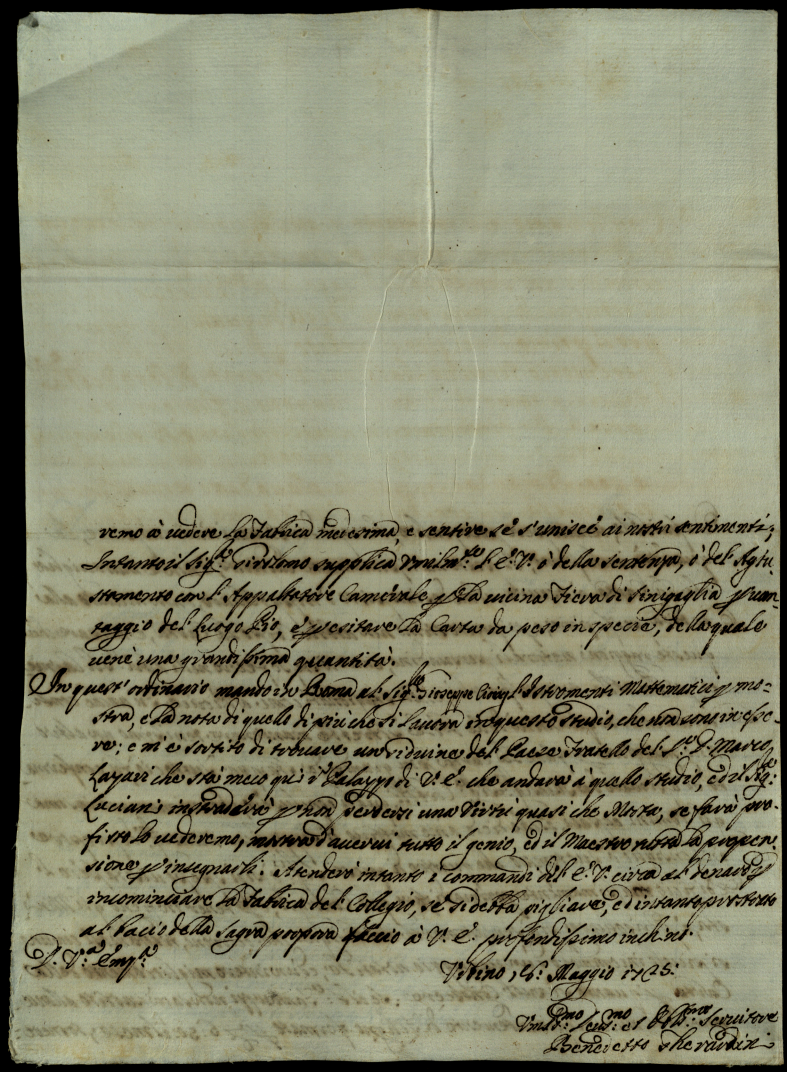 remo à vedere la fabrica medesima, e sentire se s'unisce ai nostri sentimenti;
Intanto il Sig.re supplica Umilm.te l'E.V. ò della sentenza, ò del Agiu-
stamento con l'Appaltatore Camerale p la vicina Fiera di Sinigaglia p van-
taggio del Luogo Pio, e p esitare la Carta da peso in specie, della quale
vene una grandissima quantità.
In quest'ordinario mando in Roma al Sig.re Gioseppe gl'Istromenti Mattematici p mo-
stra, e la nota di quello di più che si lavora in questo studio, che
re; e mi è sortito di trovare un del Paese Fratello del S.r D. Marco
Lazari che stà meco quì in Palazzo di V.E. che andarà à quello studio, ed il Sig.re
Luciani p non perdersi una Virtù quasi che Morta, se farà pro-
fitto lo vederemo, mostra d'avervi tutto il genio, ed il Maestro nota la propen-
sione p insegnarli. Attenderò intanto i commandi dell'E.V. circa al denaro p
incominciare la fabrica del Collegio, se si debba pigliare, ed intanto prostrato
al bacio della Sagra porpora faccio à V.E. profondissimo inchino.
D. V.ra Em.za
Urbino, 6. Maggio 1725.
Umil.mo Dev.mo et Obl.mo Servitore
Benedetto Gherardini